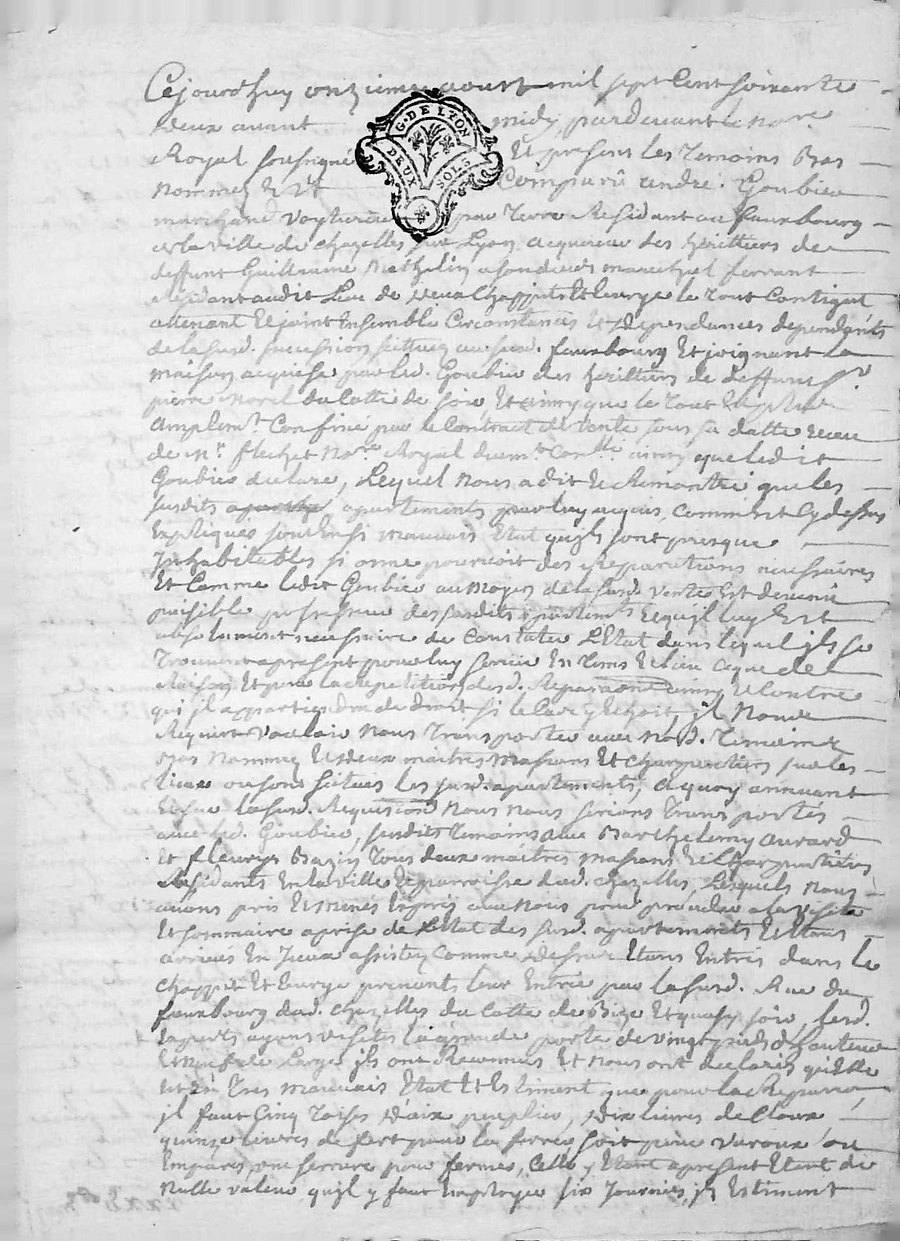 Cejourdhuy onzieme aoust mil sept Cent soixante
deux avant midy, pardevant le no.re
Royal soussigné Et present les Temoins bas
nommez Comparû andré Goubier
marchand voyturier par Terre Residant au fauxbourg
de la ville de chazelles sur Lyon acquereur des herittiers de
deffunt Guillaume Mathelin marechal ferrant
Residant audit Lieu de chappit Et Le Tout Contigut
attenant Et joint Ensemble Circonstances Et dependances dependants
de la susd. succession scittuez au susd. fauxbourg Et joignant la
maison acquise par led. Goubier des herittiers de deffunt S.r
pierre morel du Cotté de soir, Et ainsy que le Tout Est plus
amplem.t Confiné par le Contract de vente sous sa datte receu
de m.r flechet no.re Royal ainsy que ledit
Goubier declare, Lequel nous a dit Et Remontré que les
susdits apartements par luy acquis, Comment Cy dessus
Expliqués sont En si mauvais Etat qu'ils sont presque
Inhabitables si on ne pourvoit des Reparations necessaires
Et Comme ledit Goubier au moyen de la susd. vente Est devenu
paisible possesseur des susdits apartem.ts Et qu'il luy Est
absolument necessaire de Constater L'Etat dans lequel ils se
Trouvent apresent pour luy servir En Tems Et Lieu ce que de
Raison Et pour la repetition desd. Reparaõns ainsy Et Contre
qui il appartiendra de droit si le Cas y Echoit, il Nous
Requiert vouloir nous Transporter avec nosd. Temoins
bas nommez Et deux maitres massons Et Charpentiers sur les
lieux ou sont scitués les susd. apartements, a quoy annuant
Et sur la susd. Requisiõn nous nous serions Transportés
avec led. Goubier, susdits Temoins avec Barthelemy avrard
Et fleury Bazin Tous deux maitres massons Et Charpentiers
Residants En la ville Et parroisse dud. chazelles, Lesquels nous
avons pris Et menés Exprès avec nous pour proceder a la visite
Et sommaire aprise de l'Etat des susd. apartements Et Etants
arrivés En Iceux assistez Comme dessus Etans Entrés dans le
Chappit Et prenants leur Entrée par la susd. Rue du
fauxbourg dud. chazelles du Cotté de Bize Et quasy soir, lesd.
Experts ayant visités la grande porte de vingt pieds d'hauteur
Et neuf de Large ils ont Reconnus Et nous ont declarés qu'Elle
Est En Tres mauvais Etat Et Estiment que pour la Reparer
il faut Cinq Toises d'aix peuplier, dix livres de Cloux
quinze livres de fert pour la ferrer soit pour varoux ou
Empares, une serrure pour fermer, Celle y Etant apresent Etant de
nulle valeur qu'il y faut Employer six journées, ils Estiment
G. DE LYON
DEUX SOLS